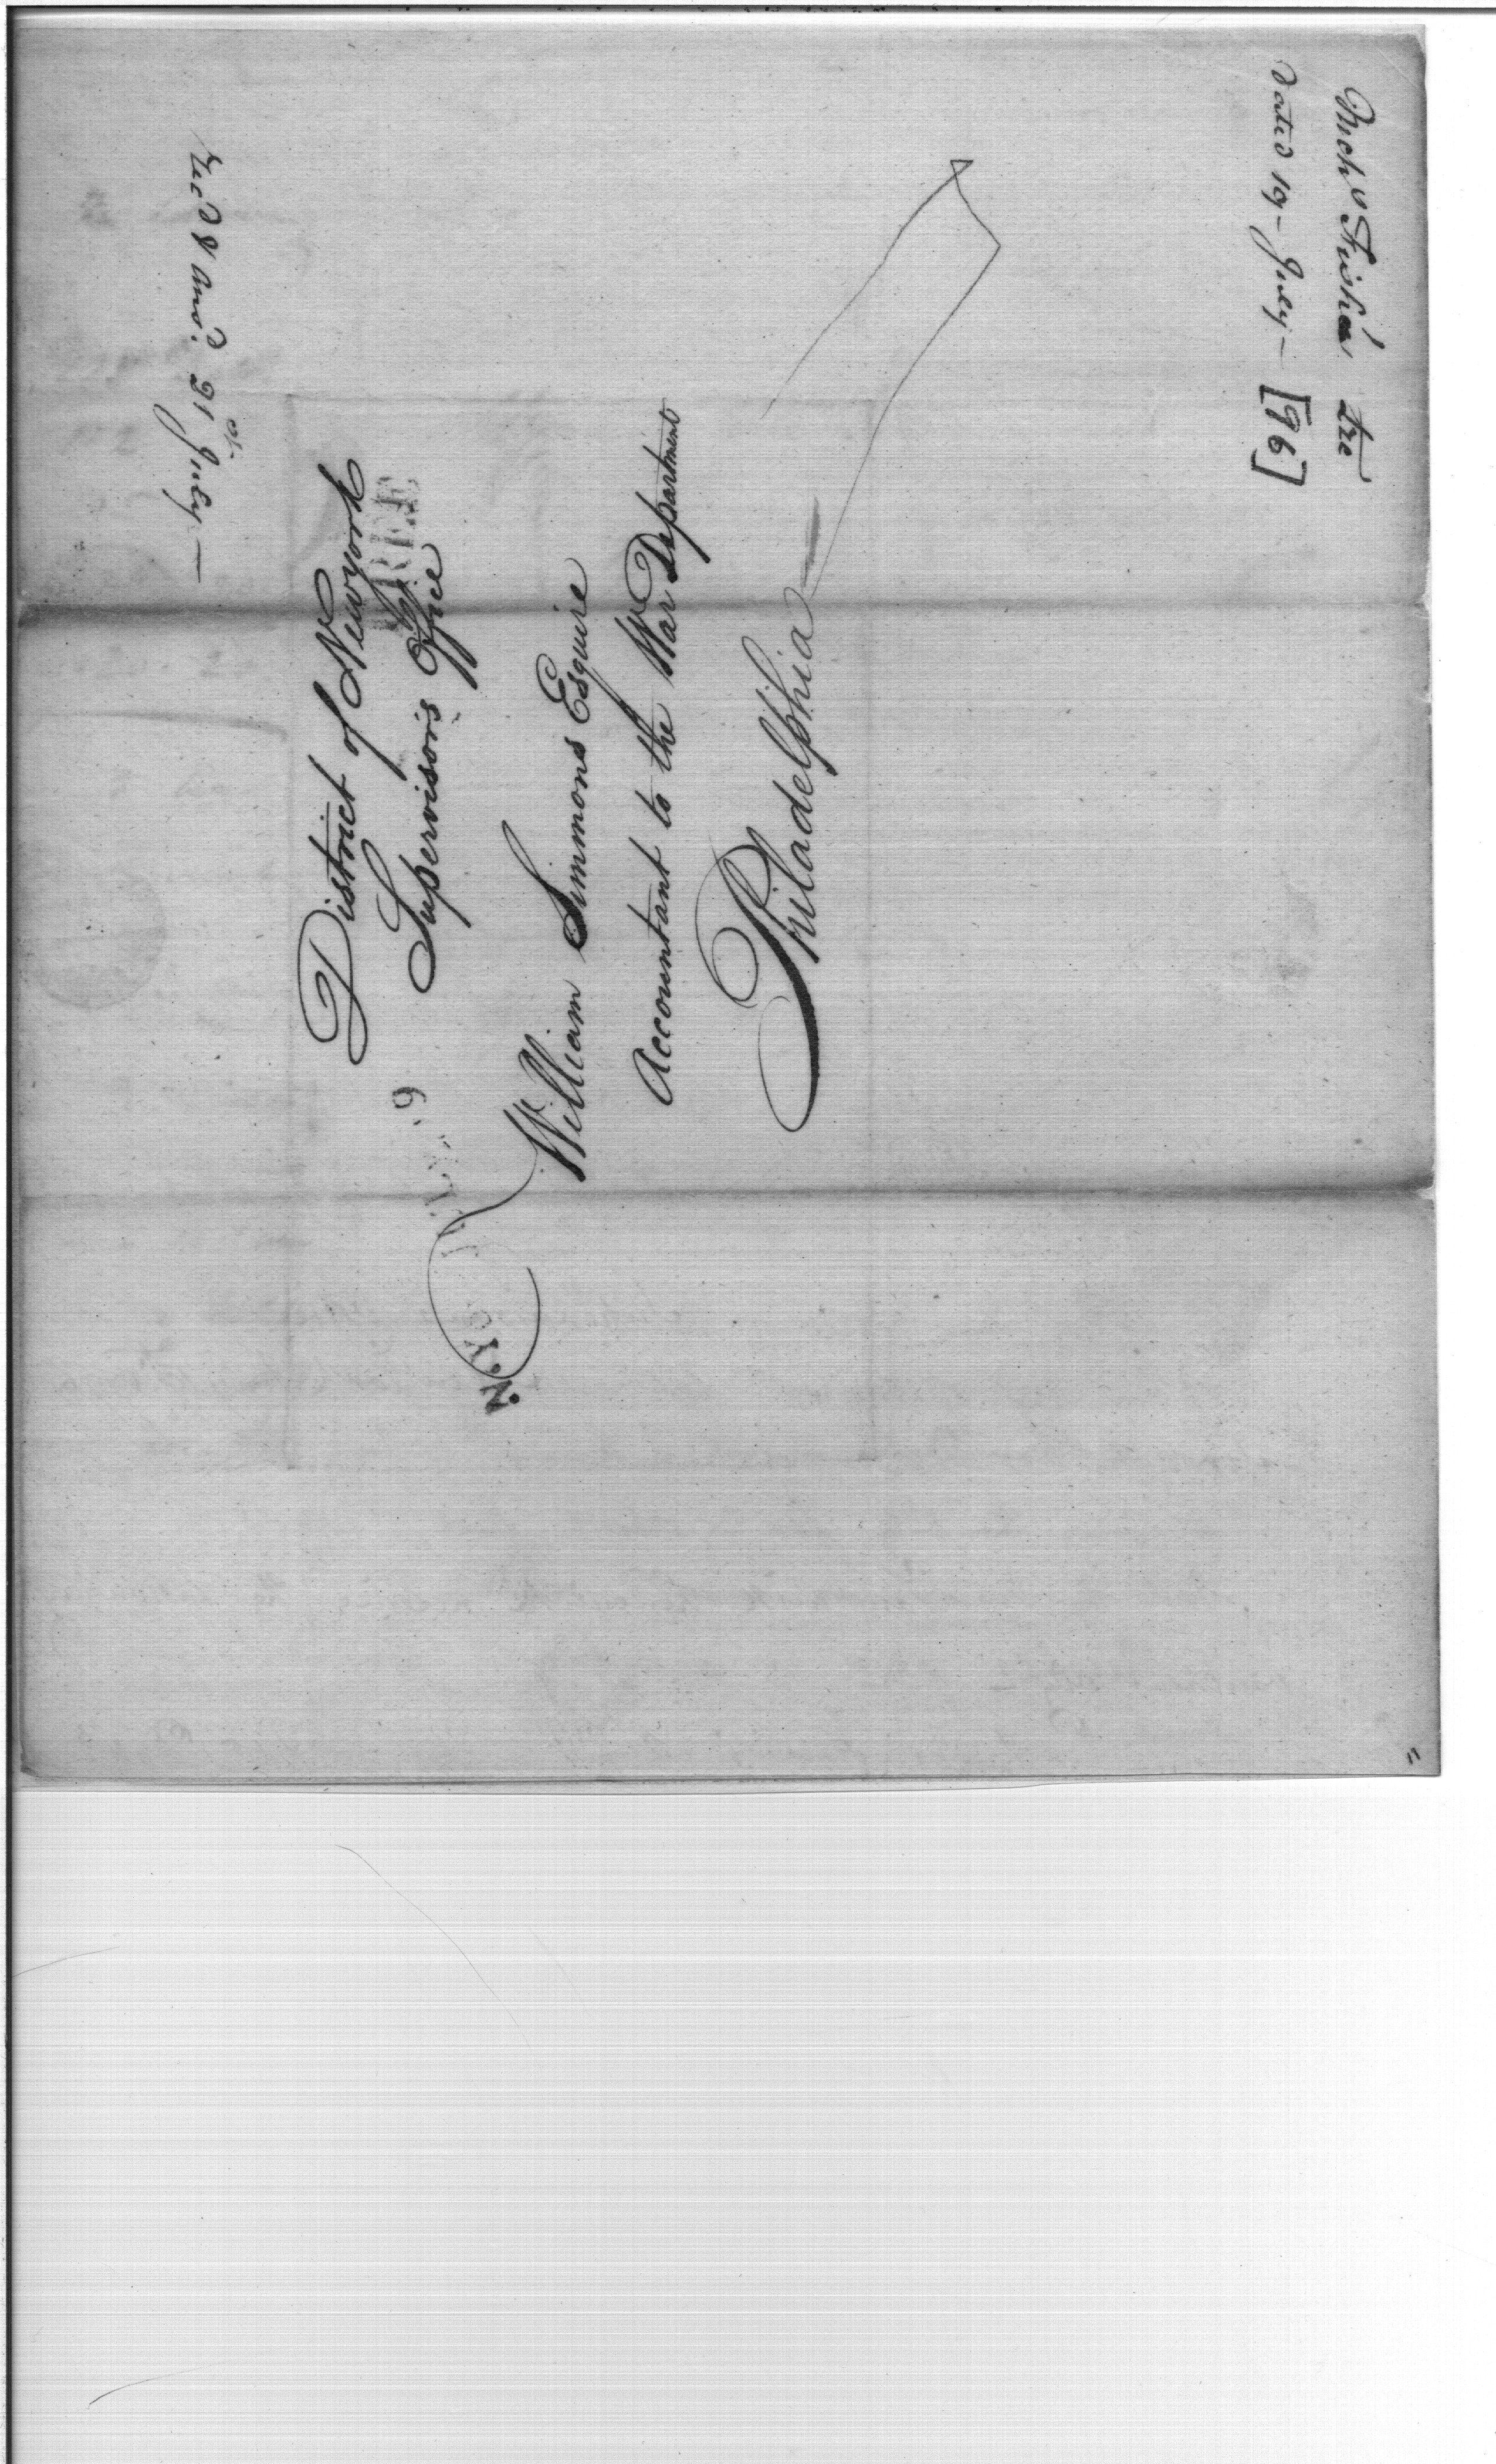 District of Newyork
Supervisors Office
FREE
N. YO JULY 9
William Simmons Esquire
Accountant to the War Department
Philadelphia
dated 19 - July - [96]
Recd & ansd. 21st July -